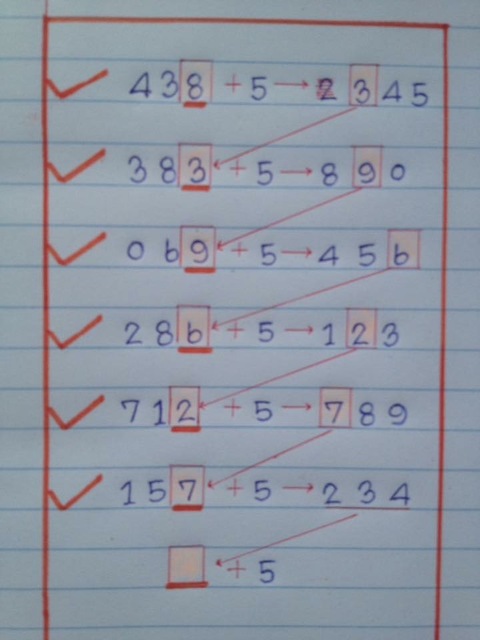 438 + 5 → 2345
383 + 5 → 890
069 + 5 → 456
286 + 5 → 123
712 + 5 → 789
157 + 5 → 234
+ 5